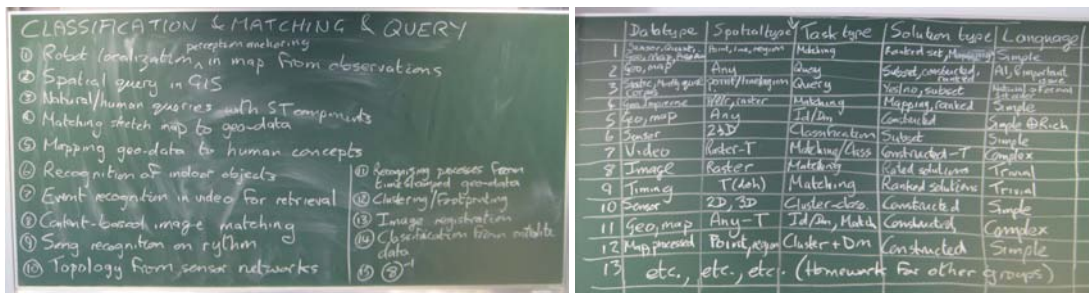 CLASSIFICATION & MATCHING & QUERY
perception anchoring
① Robot localization ^ in map from observations
② Spatial query in GIS
③ Natural/human queries with ST components
④ Matching sketch map to geo-data
⑤ Mapping geo-data to human concepts
⑥ Recognition of indoor objects
⑦ Event recognition in video for retrieval
⑧ Content-based image matching
⑨ Song recognition on rythm
⑩ Topology from sensor networks
⑪ Recognising processes from
timestamped geo-data
⑫ Clustering/Footprinting
⑬ Image registration
⑭ Classification from satellite
data
⑮ ⑧⁻¹
Datatype Spatial type Task type Solution type Language
1 Sensor, Point, line, region Matching Ranked set, Simple
Geo, map,
2 Geo, map Any Query Subset, constructed, ranked
3 point/line/region Query Yes/no, subset Natural → Formal
4 raster Matching Mapping, ranked Simple
5 Geo, map Any Id/Dm Constructed Simple ⊕ Rich
6 Sensor 2,3D Classification Subset Simple
7 Video Raster-T Matching/Class Constructed-T Complex
8 Image Raster Matching Rated solutions Trivial
9 Timing T Matching Ranked solutions Trivial
10 Sensor 2D, 3D Cluster-class. Constructed Simple
11 Geo, map Any-T Id/Dm, Match Constructed, Complex
12 Map, processed Point, Region Cluster + Dm Constructed Simple
13 etc., etc., etc. (Homework for other groups)